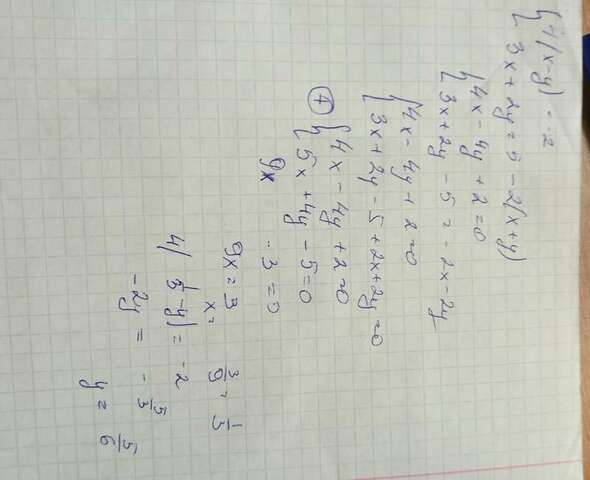 { 4(x-y) = -2
{ 3x + 2y = 5 - 2(x+y)
{ 4x - 4y + 2 = 0
{ 3x + 2y - 5 = -2x - 2y
{ 4x - 4y + 2 = 0
{ 3x + 2y - 5 + 2x + 2y = 0
+ { 4x - 4y + 2 = 0
{ 5x + 4y - 5 = 0
9x - 3 = 0
9x = 3
x = 3/9 = 1/3
4( 1/3 - y) = -2
-2y = - 5/3
y = 5/6